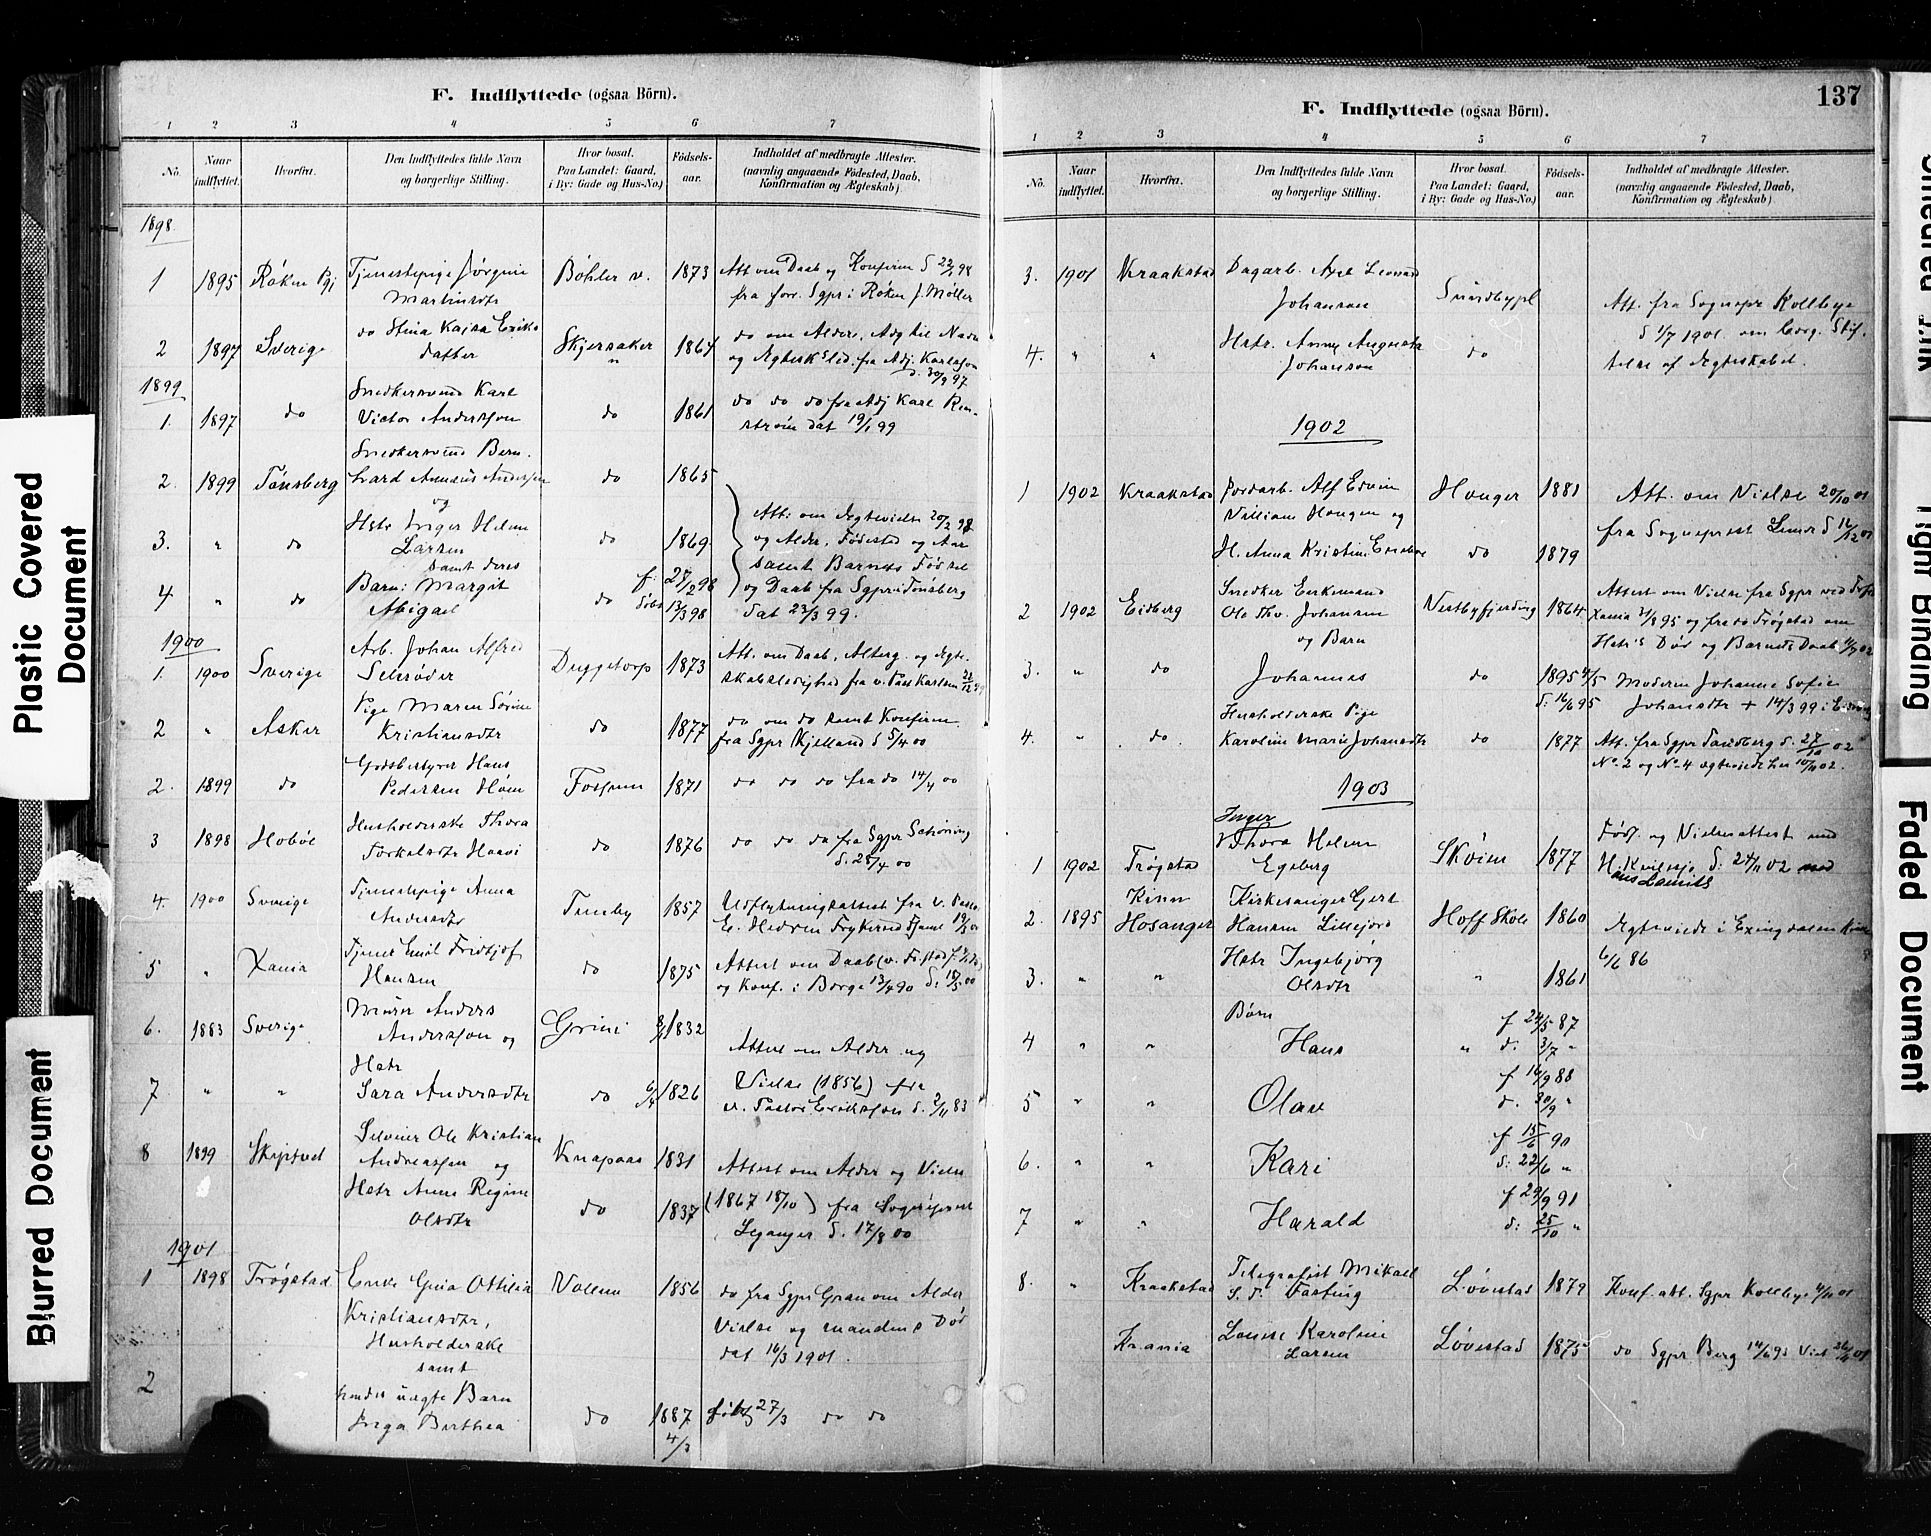 F. Indflyttede (ogsaa Börn).
1 2 3 4 5 6 7
No. Naar indflyttet. Hvorfra. Den Indflyttedes fulde Navn og borgerlige Stilling. Hvor bosat. Paa Landet: Gaard, i By: Gade og Hus-No.) Födsels-aar. Indholdet af medbragte Attester. (navnlig angaaende Födested, Daab, Konfirmation og Ægteskab)
1898
1 1895 Røken Pgj Tjenestepige Jørgine Bøhler v. 1873 Att om Daab og Konfirm d 22/1 98
Martinsdtr fra forr. Sgpr i Røken J. Møller
do Stina Kajsa Eriks do om Alder, Adg til Nadv
2 1897 Sverige datter Skjersaker 1864 og Ægtesk.sled. fra Adj. Karlsson
n d. 30/9 97
1899
Snedkersvend Karl
1. 1897 do Victor Andersson do 1861 do do do fra Adj Karl Ren-
strøm dat 19/1 99
Snedkersvend Bern.
2. 1899 Tønsberg hard Annæus Andersen do 1865
og
3. " do Hstr Inger Helene do 1869 Att: om Ægtevielse 20/2 98
Larsen og Alder, Fødested og Aar
samt deres samt Barnets Fødsel
4 " do Barn: Margit do f: 27/2 98 og Daab fra Sgpr i Tønsberg
Abigael døbt 13/3 98 dat 23/3 99.
1900
Arb. Johan Alfred
1. 1900 Sverige Schrøder Duggetorp 1873 Att. om Daab, Alterg. og Ægte-
skabsledighed fra v. Past Karlsen 22/12 99
Pige Maren Sørine
2 " Asker Kristiansdtr do 1877 do om do samt Konfirm.
fra Sgpr Kjelland d 5/4 00
Godsbestyrer Hans
2. 1899 do Pedersen Høen Fossum 1871 do do do fra do 14/4 00
Husholderske Thora
3 1898 Hobøl Torkelsdtr Haavi do 1876 do do do fra Sgpr Schøning
d. 25/4 00
Tjenestepige Anna
4. 1900 Sverige Andersdtr Tomby 1857 Udflytningsattest fra v. Pastor
E. Hedren
Tjener Emil Fridtjof
5 " Xania Hansen do 1875 Attest om Daab
og Konf. i Borge 13/4 90 d. 18/5 00
Murer Anders
6. 1883 Sverige Andersson og Grini 1832 Attest om Alder og
Hstr
7 " " Sara Andersdtr do 6/4 1826 Vielse (1856) fra
v. Pastor Eriksson d. 2/11 83
8 1899 Skiptvet Ole Kristian Knapaas 1831 Attest om Alder og Vielse
Andreassen og
Hstr Anne Regine do 1837 (1867 18/10) fra Sogneprest
Olsdtr Leganger d. 17/8 00
1901
1 1898 Trøgstad Enke Gina Ottilia Vollene 1856 do fra Sgpr Gran om Alder
Kristiansdtr, Vielse og mandens Død
Husholderske dat 16/3 1901.
samt
2 hendes uægte Barn
Inga Berthea do 1887 4/3 døbt 27/3 do do
F. Indflyttede (ogsaa Börn). 137
1 2 3 4 5 6 7
No. Naar indflyttet. Hvorfra. Den Indflyttedes fulde Navn og borgerlige Stilling. Hvor bosat. Paa Landet: Gaard, i By: Gade og Hus-No.) Födsels-aar. Indholdet af medbragte Attester. (navnlig angaaende Födested, Daab, Konfirmation og Ægteskab)
3. 1901 Kraakstad Dagarb. Axel Leonard
Johanson Sundbypl Att. fra Sognepr Kollbye
d 1/7 1901 om borg. Stif-
4. " " Hstr. Anna Augusta do telse af Ægteskabet.
Johanson
1902
1 1902 Kraakstad Jordarb. Alf Edvin Honger 1881 Att. om Vielse 20/10 01
William Hongen og fra Sogneprest d 16/12 01
H. Anna Kristine do 1879
Snedker Enkemand Attest om Vielse fra Sgpr ved
2 1902 Eidberg Ole Thv. Johansen Vestbyfjerding 1864 Xania 31/8 95 og fra do Trøgstad om
og Barn Hstr's Død og Barnets Daab 11/7 02
3. " do Johannes do 1895 4/5 Moderen Johanne Sofie
d: 16/6 95 Johansdtr + 14/3 99 i
Husholderske Pige
4. " do Karoline Marie Johansdtr do 1877 Att. fra Sgpr Sandberg d. 27/10 02
No 2 og No 4 ægteviede her 10/11 02.
1903
Inger
Thora Helene Føds. og Vielsesattest med
1 1902 Trøgstad Egeberg Skøien 1877 H. d: 24/11 02 med
Hans Lauits
Kinn Kirkesanger Gjert
2. 1895 Hosanger Hansen Lillejord Hoff Skole 1860 Ægteviede i Exingdalen
Hstr Ingebjørg 6/6 86
3. " " Olsdtr " 1861
Børn
4 " " Hans " f 24/5 87
d. 3/7 "
5 " " Olav f 16/9 88
d. 30/9 "
6. " " Kari f 15/6 90
d: 22/6 "
7 " " Harald f 29/9 91
d: 25/10 "
8. " Kraakstad Telegrafist Mikael Løvestad 1879 Konf. att. Sgpr Kollbye 4/11 01
S. F. Fasting
Kr.ania Louise Karoline Løvestad 1875 do Sgpr Berg 14/6 93 Viet 26/4 01
Larsen
Plastic Covered Document
Blurred Document
Tight Binding
Faded Document